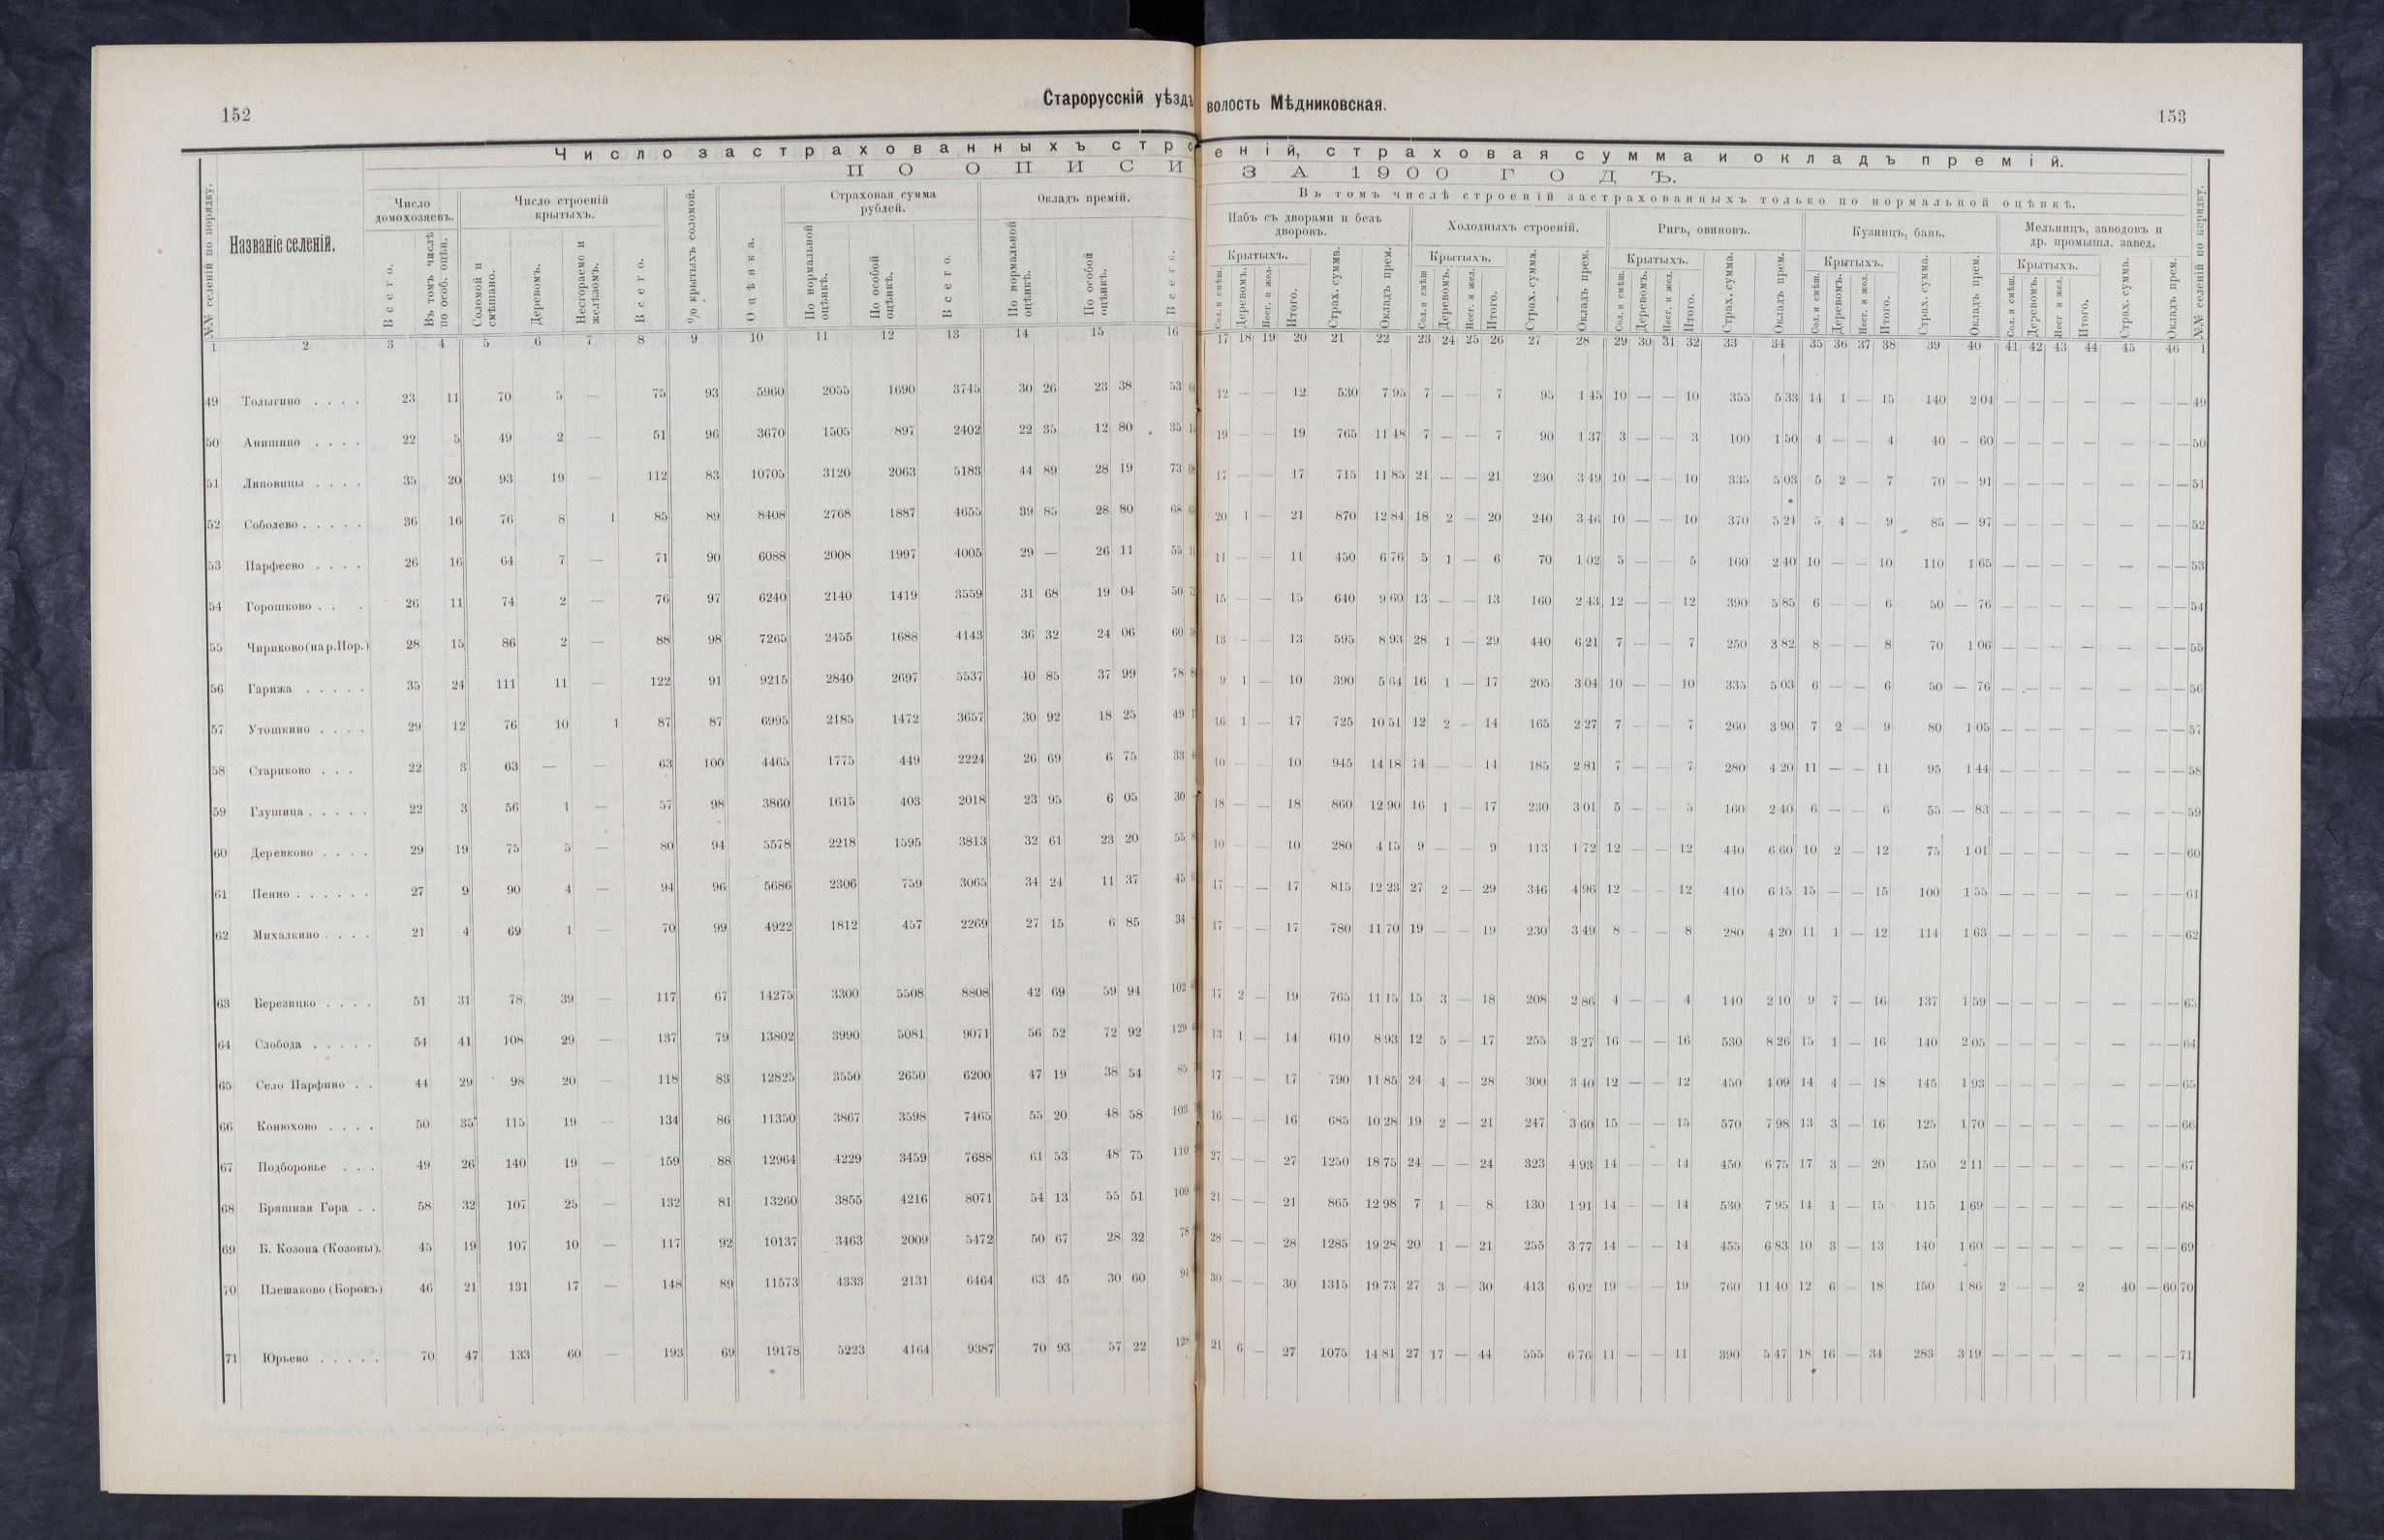 152
Старорусскій уѣздъ
волость Мѣдниковская.
153
Число застрахованныхъ стро
еній, страховая сумма и окладъ премій.
ПО ОПИСИ
ЗА 1900 ГОДЪ.
№№ селеній по порядку.
Названіе селеній.
Число домохозяевъ.
Всего.
Въ томъ числѣ по особ. оцѣн.
Число строеній крытыхъ.
Соломой и смѣшано.
Деревомъ.
Несгораемо и желѣзомъ.
Всего.
% крытыхъ соломой.
Оцѣнка.
Страховая сумма рублей.
По нормальной оцѣнкѣ.
По особой оцѣнкѣ.
Всего.
Окладъ премій.
По нормальной оцѣнкѣ.
По особой оцѣнкѣ.
Всего.
Въ томъ числѣ строеній застрахованныхъ только по нормальной оцѣнкѣ.
Избъ съ дворами и безъ дворовъ.
Крытыхъ.
Сол. и смѣш.
Деревомъ.
Несг. и жел.
Итого.
Страх. сумма.
Окладъ прем.
Холодныхъ строеній.
Крытыхъ.
Сол. и смѣш
Деревомъ.
Несг. и жел.
Итого.
Страх. сумма.
Окладъ прем.
Ригъ, овиновъ.
Крытыхъ.
Сол. и смѣш.
Деревомъ.
Несг. и жел.
Итого.
Страх. сумма.
Окладъ прем.
Кузницъ, бань.
Крытыхъ.
Сол. и смѣш.
Деревомъ.
Несг. и жел.
Итого.
Страх. сумма.
Окладъ прем.
Мельницъ, заводовъ и др. промышл. завед.
Крытыхъ.
Сол. и смѣш.
Деревомъ.
Несг и жел.
Итого.
Страх. сумма.
Окладъ прем.
№№ селеній по порядку.
1 2 3 4 5 6 7 8 9 10 11 12 13 14 15 16 17 18 19 20 21 22 23 24 25 26 27 28 29 30 31 32 33 34 35 36 37 38 39 40 41 42 43 44 45 46 1
49 Толыгино . . . . 23 11 70 5 — 75 93 5960 2055 1690 3745 30 26 23 38 53 12 — — 12 530 7 95 7 — — 7 95 1 45 10 — — 10 355 5 33 14 1 — 15 140 2 04 — — — — — — — 49
50 Анишино . . . . 22 5 49 2 — 51 96 3670 1505 897 2402 22 35 12 80 35 19 — — 19 765 11 48 7 — — 7 90 1 37 3 — — 3 100 1 50 4 — — 4 40 — 60 — — — — — — — 50
51 Липовицы . . . . 35 20 93 19 — 112 83 10705 3120 2063 5183 44 89 28 19 73 08 17 — — 17 715 11 85 21 — — 21 230 3 49 10 — — 10 335 5 03 5 2 — 7 70 — 91 — — — — — — — 51
52 Соболево . . . . . 36 16 76 8 1 85 89 8408 2768 1887 4655 39 85 28 80 68 20 1 — 21 870 12 84 18 2 — 20 240 3 46 10 — — 10 370 5 21 5 4 — 9 85 — 97 — — — — — — — 52
53 Парфеево . . . . 26 16 64 7 — 71 90 6088 2008 1997 4005 29 — 26 11 55 11 11 — — 11 450 6 76 5 1 — 6 70 1 02 5 — — 5 160 2 40 10 — — 10 110 1 65 — — — — — — — 53
54 Горошково . . . 26 11 74 2 — 76 97 6240 2140 1419 3559 31 68 19 04 50 15 — — 15 640 9 60 13 — — 13 160 2 43 12 — — 12 390 5 85 6 — — 6 50 — 76 — — — — — — — 54
55 Чириково(на р.Пор.) 28 15 86 2 — 88 98 7265 2455 1688 4143 36 32 24 06 60 13 — — 13 595 8 93 28 1 — 29 440 6 21 7 — — 7 250 3 82 8 — — 8 70 1 06 — — — — — — — 55
56 Гарижа . . . . . 35 24 111 11 — 122 91 9215 2840 2697 5537 40 85 37 99 78 9 1 — 10 390 5 64 16 1 — 17 205 3 04 10 — — 10 335 5 03 6 — — 6 50 — 76 — — — — — — — 56
57 Утошкино . . . . 29 12 76 10 1 87 87 6995 2185 1472 3657 30 92 18 25 49 16 1 — 17 725 10 51 12 2 — 14 165 2 27 7 — — 7 260 3 90 7 2 — 9 80 1 05 — — — — — — — 57
58 Стариково . . . 22 3 63 — — 63 100 4465 1775 449 2224 26 69 6 75 33 10 — — 10 945 14 18 14 — — 14 185 2 81 7 — — 7 280 4 20 11 — — 11 95 1 44 — — — — — — — 58
59 Глушица . . . . . 22 3 56 1 — 57 98 3860 1615 403 2018 23 95 6 05 30 18 — — 18 860 12 90 16 1 — 17 230 3 01 5 — — 5 160 2 40 6 — — 6 55 — 83 — — — — — — — 59
60 Деревково . . . . 29 19 75 5 — 80 94 5578 2218 1595 3813 32 61 23 20 55 10 — — 10 280 4 15 9 — — 9 113 1 72 12 — — 12 440 6 60 10 2 — 12 75 1 01 — — — — — — — 60
61 Пенно . . . . . . 27 9 90 4 — 94 96 5686 2306 759 3065 34 24 11 37 45 17 — — 17 815 12 23 27 2 — 29 346 4 96 12 — — 12 410 6 15 15 — — 15 100 1 55 — — — — — — — 61
62 Михалкино . . . . 21 4 69 1 — 70 99 4922 1812 457 2269 27 15 6 85 34 17 — — 17 780 11 70 19 — — 19 230 3 49 8 — — 8 280 4 20 11 1 — 12 114 1 63 — — — — — — — 62
63 Березицко . . . . 51 31 78 39 — 117 67 14275 3300 5508 8808 42 69 59 94 102 17 2 — 19 765 11 15 15 3 — 18 208 2 86 4 — — 4 140 2 10 9 7 — 16 137 1 59 — — — — — — — 63
64 Слобода . . . . . 54 41 108 29 — 137 79 13802 3990 5081 9071 56 52 72 92 129 13 1 — 14 610 8 93 12 5 — 17 255 3 27 16 — — 16 530 8 26 15 1 — 16 140 2 05 — — — — — — — 64
65 Село Парфино . . 44 29 98 20 — 118 83 12825 3550 2650 6200 47 19 38 54 85 17 — — 17 790 11 85 24 4 — 28 300 3 40 12 — — 12 450 4 09 14 4 — 18 145 1 93 — — — — — — — 65
66 Конюхово . . . . 50 35 115 19 — 134 86 11350 3867 3598 7465 55 20 48 58 103 16 — — 16 685 10 28 19 2 — 21 247 3 60 15 — — 15 570 7 98 13 3 — 16 125 1 70 — — — — — — — 66
67 Подборовье . . . 49 26 140 19 — 159 88 12964 4229 3459 7688 61 53 48 75 110 27 — — 27 1250 18 75 24 — — 24 323 4 93 14 — — 14 450 6 75 17 3 — 20 150 2 11 — — — — — — — 67
68 Бряшная Гора . . 58 32 107 25 — 132 81 13260 3855 4216 8071 54 13 55 51 109 21 — — 21 865 12 98 7 1 — 8 130 1 91 14 — — 14 530 7 95 14 1 — 15 115 1 69 — — — — — — — 68
69 Б. Козона (Козоны). 45 19 107 10 — 117 92 10137 3463 2009 5472 50 67 28 32 78 28 — — 28 1285 19 28 20 1 — 21 255 3 77 14 — — 14 455 6 83 10 3 — 13 140 1 60 — — — — — — — 69
70 Плешаково (Борокъ) 46 21 131 17 — 148 89 11573 4333 2131 6464 63 45 30 60 94 30 — — 30 1315 19 73 27 3 — 30 413 6 02 19 — — 19 760 11 40 12 6 — 18 150 1 86 2 — — 2 40 — 60 70
71 Юрьево . . . . . 70 47 133 60 — 193 69 19178 5223 4164 9387 70 93 57 22 128 21 6 — 27 1075 14 81 27 17 — 44 555 6 76 11 — — 11 390 5 47 18 16 — 34 283 3 19 — — — — — — — 71